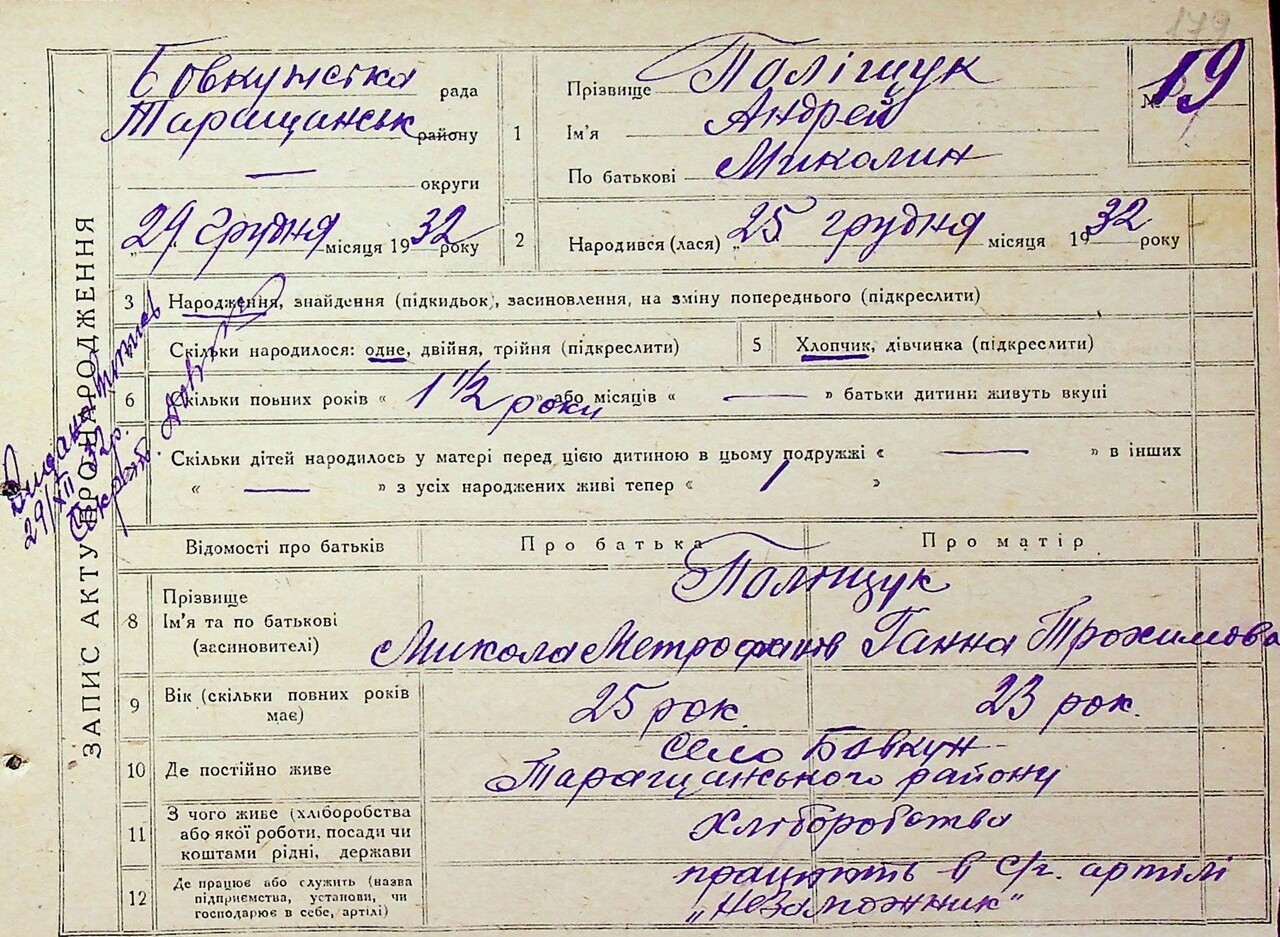 179
Бовкунська рада
Таращанськ району
— округи
„29 грудня місяця 1932 року
1
Прізвище Поліщук
Ім'я Андрей
По батькові Миколин
№ 19
2
Народився (лася) „25 грудня місяця 1932 року
ЗАПИС АКТУ ПРО НАРОДЖЕННЯ
29/XII 32р.
3 Народження, знайдення (підкидьок), засиновлення, на зміну попереднього (підкреслити)
Скільки народилося: одне, двійня, трійня (підкреслити)
5 Хлопчик, дівчинка (підкреслити)
6 Скільки повних років « 1 1/2 роки » або місяців « — » батьки дитини живуть вкупі
Скільки дітей народилось у матері перед цією дитиною в цьому подружжі « — » в інших
« — » з усіх народжених живі тепер « 1 »
Відомості про батьків
Про батька
Про матір
8
Прізвище
Ім'я та по батькові
(засиновителі)
Поліщук
Микола Метрофанов Ганна Трохимова
9
Вік (скільки повних років
має)
25 рок.
23 рок.
10 Де постійно живе
Село Бавкун
Таращанського району
11
З чого живе (хліборобства
або якої роботи, посади чи
коштами рідні, держави
Хліборобства
12
Де працює або служить (назва
підприємства, установи, чи
господарює в себе, артілі)
працюють в С/г. артілі
„Незаможник"